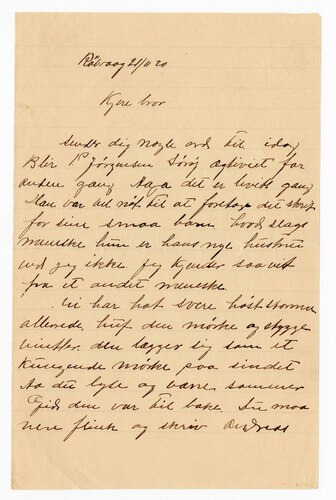 Rövaag 21/11 20
Kjere bror
sender dig nogle ord til idag
Blir P Jørgensen Sörøj agtviet for
anden gang Aaja det er livets gang
Han var vel nøt til at foretage det skrit
for sine smaa barn hvad slags
menneske hun er hans nye hustru
ved jeg ikke. jeg kjender saavit
fra et andet meneske.
Vi har hat svere høststorme
allerede, huf den mørke og stygge
vinter. den lægger sig som et
mørke paa sindet
Aa du lyse og varme sommer
Gid den var til bake. Du maa
vere flink og skriv Andreas